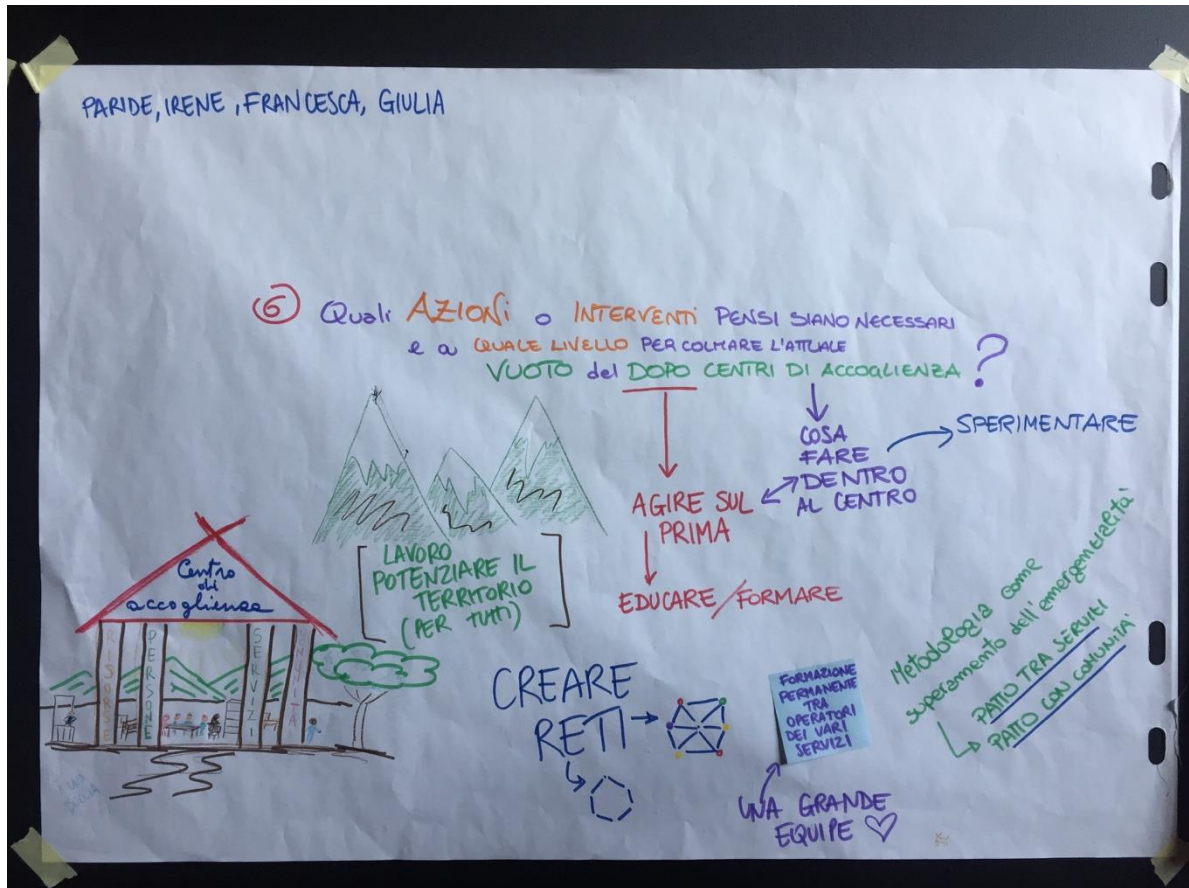 PARIDE, IRENE, FRANCESCA, GIULIA
6 Quali AZIONI o INTERVENTI PENSI SIANO NECESSARI
e a QUALE LIVELLO PER COLMARE L'ATTUALE
VUOTO del DOPO CENTRI DI ACCOGLIENZA ?
COSA
FARE
DENTRO
AL CENTRO
SPERIMENTARE
AGIRE SUL
PRIMA
EDUCARE/FORMARE
LAVORO
POTENZIARE IL
TERRITORIO
(PER TUTTI)
Centro
di
accoglienza
RISORSE
PERSONE
SERVIZI
CREARE
RETI
FORMAZIONE
PERMANENTE
TRA
OPERATORI
DEI VARI
SERVIZI
UNA GRANDE
EQUIPE
Metodologia come
superamento dell'emergenzialità
PATTO TRA SERVIZI
PATTO CON COMUNITÀ